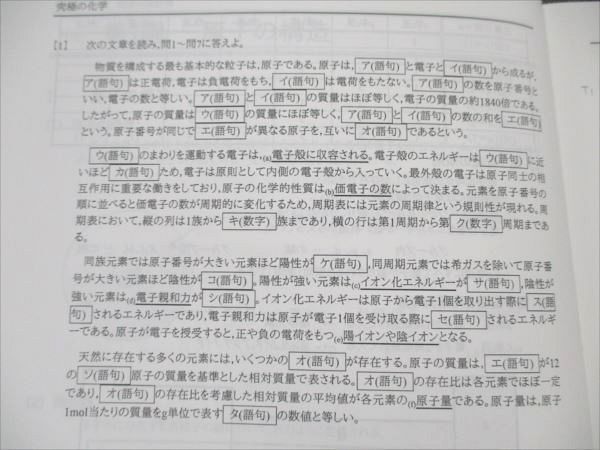 究極の化学
[1] 次の文章を読み,問1～問7に答えよ。
物質を構成する最も基本的な粒子は,原子である。原子は, ア(語句) と電子と イ(語句) から成るが,
ア(語句) は正電荷,電子は負電荷をもち, イ(語句) は電荷をもたない。 ア(語句) の数を原子番号と
いい,電子の数と等しい。 ア(語句) と イ(語句) の質量はほぼ等しく,電子の質量の約1840倍である。
したがって,原子の質量は ウ(語句) の質量にほぼ等しく, ア(語句) と イ(語句) の数の和を エ(語句)
という。原子番号が同じで エ(語句) が異なる原子を,互いに オ(語句) であるという。
ウ(語句) のまわりを運動する電子は,(a)電子殻に収容される。電子殻のエネルギーは ウ(語句) に近
いほど カ(語句) ため,電子は原則として内側の電子殻から入っていく。最外殻の電子は原子同士の相
互作用に重要な働きをしており,原子の化学的性質は(b)価電子の数によって決まる。元素を原子番号の
順に並べると価電子の数が周期的に変化するため,周期表には元素の周期律という規則性が現れる。周
期表において,縦の列は1族から キ(数字) 族まであり,横の行は第1周期から第 ク(数字) 周期まであ
る。
同族元素では原子番号が大きい元素ほど陽性が ケ(語句) ,同周期元素では希ガスを除いて原子番
号が大きい元素ほど陰性が コ(語句) 。陽性が強い元素は(c)イオン化エネルギーが サ(語句) ,陰性が
強い元素は(d)電子親和力が シ(語句) 。イオン化エネルギーは原子から電子1個を取り出す際に ス(語
句) されるエネルギーであり,電子親和力は原子が電子1個を受け取る際に セ(語句) されるエネルギ
ーである。原子が電子を授受すると,正や負の電荷をもつ(e)陽イオンや陰イオンとなる。
天然に存在する多くの元素には,いくつかの オ(語句) が存在する。原子の質量は, エ(語句) が12
の ソ(語句) 原子の質量を基準とした相対質量で表される。 オ(語句) の存在比は各元素でほぼ一定
であり, オ(語句) の存在比を考慮した相対質量の平均値が各元素の(f)原子量である。原子量は,原子
1mol当たりの質量をg単位で表す タ(語句) の数値と等しい。